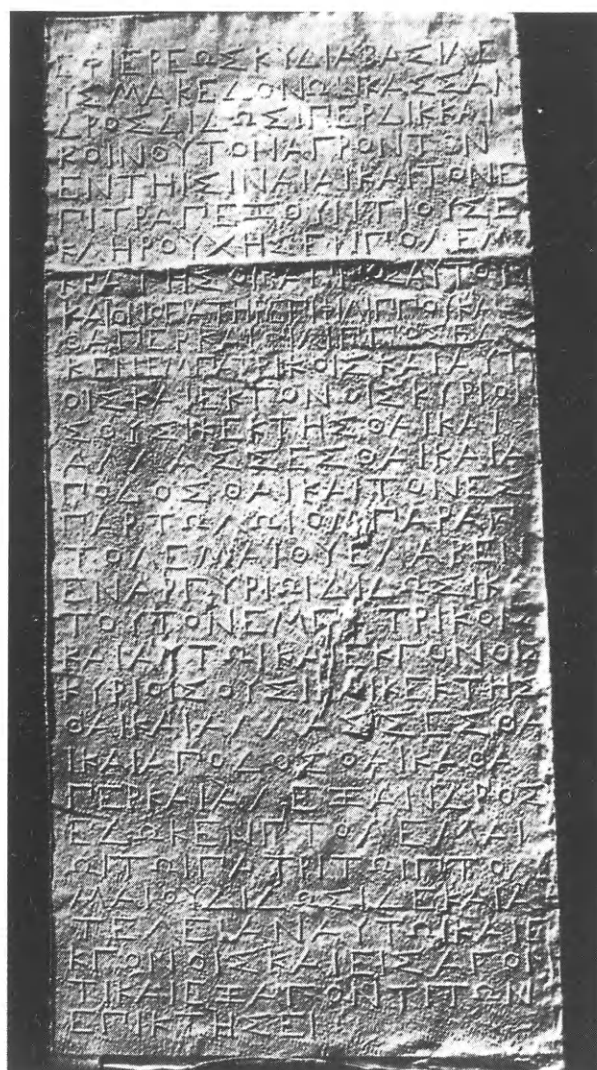 ΕΦΙΕΡΕΩΣΚΥΔΙΑΒΑΣΙΛΕ
ΥΣΜΑΚΕΔΟΝΩΝΚΑΣΣΑΝ
ΔΡΟΣΔΙΔΩΣΙΠΕΡΔΙΚΚΑΙ
ΚΟΙΝΟΥΤΟΝΑΓΡΟΝΤΟΝ
ΕΝΤΗΙΣΙΝΑΙΑΙΚΑΙΤΟΝΕ
ΠΙΤΡΑΠΕΖΟΥΝΤΙΟΥΣΕ
ΚΛΗΡΟΥΧΗΣΕΝΠΟΛΕΜ
ΚΡΑΤΗΣΟΠΑΠΠΟΣΑΥΤΟΥ
ΚΑΙΩΝΟΠΑΤΗΡΕΠΙΦΙΛΙΠΠΟΥΚΑ
ΘΑΠΕΡΚΑΙΦΙΛΙΠΠΟΣΕΔΩ
ΚΕΝΕΜΠΑΤΡΙΚΟΙΣΚΑΙΑΥΤ
ΟΙΣΚΑΙΕΚΓΟΝΟΙΣΚΥΡΙΟΙ
ΣΟΥΣΙΚΕΚΤΗΣΘΑΙΚΑΙ
ΑΛΛΑΣΣΕΣΘΑΙΚΑΙΑ
ΠΟΔΟΣΘΑΙΚΑΙΤΟΝΕΣ
ΠΑΡΤΩΛΩΙΟΜΠΑΡΑΠ
ΤΟΛΕΜΑΙΟΥΕΛΑΒΕΝ
ΕΝΑΡΓΥΡΙΩΙΔΙΔΩΣΙΚ
ΤΟΥΤΟΝΕΜΠΑΤΡΙΚΟΙΣ
ΚΑΙΑΥΤΩΙΚΑΙΕΚΓΟΝΟΙΣ
ΚΥΡΙΟΙΣΟΥΣΙΚΕΚΤΗΣ
ΘΑΙΚΑΙΑΛΛΑΣΣΕΣΘΑ
ΙΚΑΙΑΠΟΔΟΣΘΑΙΚΑΘΑ
ΠΕΡΚΑΙΑΛΕΞΑΝΔΡΟΣ
ΕΔΩΚΕΝΠΤΟΛΕΜΑΙ
ΩΙΤΩΙΠΑΤΡΙΤΩΙΠΤΟΛ
ΜΑΙΟΥΔΙΔΩΣΙΔΕΚΑΙΑ
ΤΕΛΕΙΑΝΑΥΤΩΙΚΑΙΕ
ΚΓΟΝΟΙΣΚΑΙΕΙΣΑΓΟ
ΤΙΚΑΙΕΞΑΓΟΝΤΙΤΩΝ
ΕΠΙΚΤΗΣΕΙ